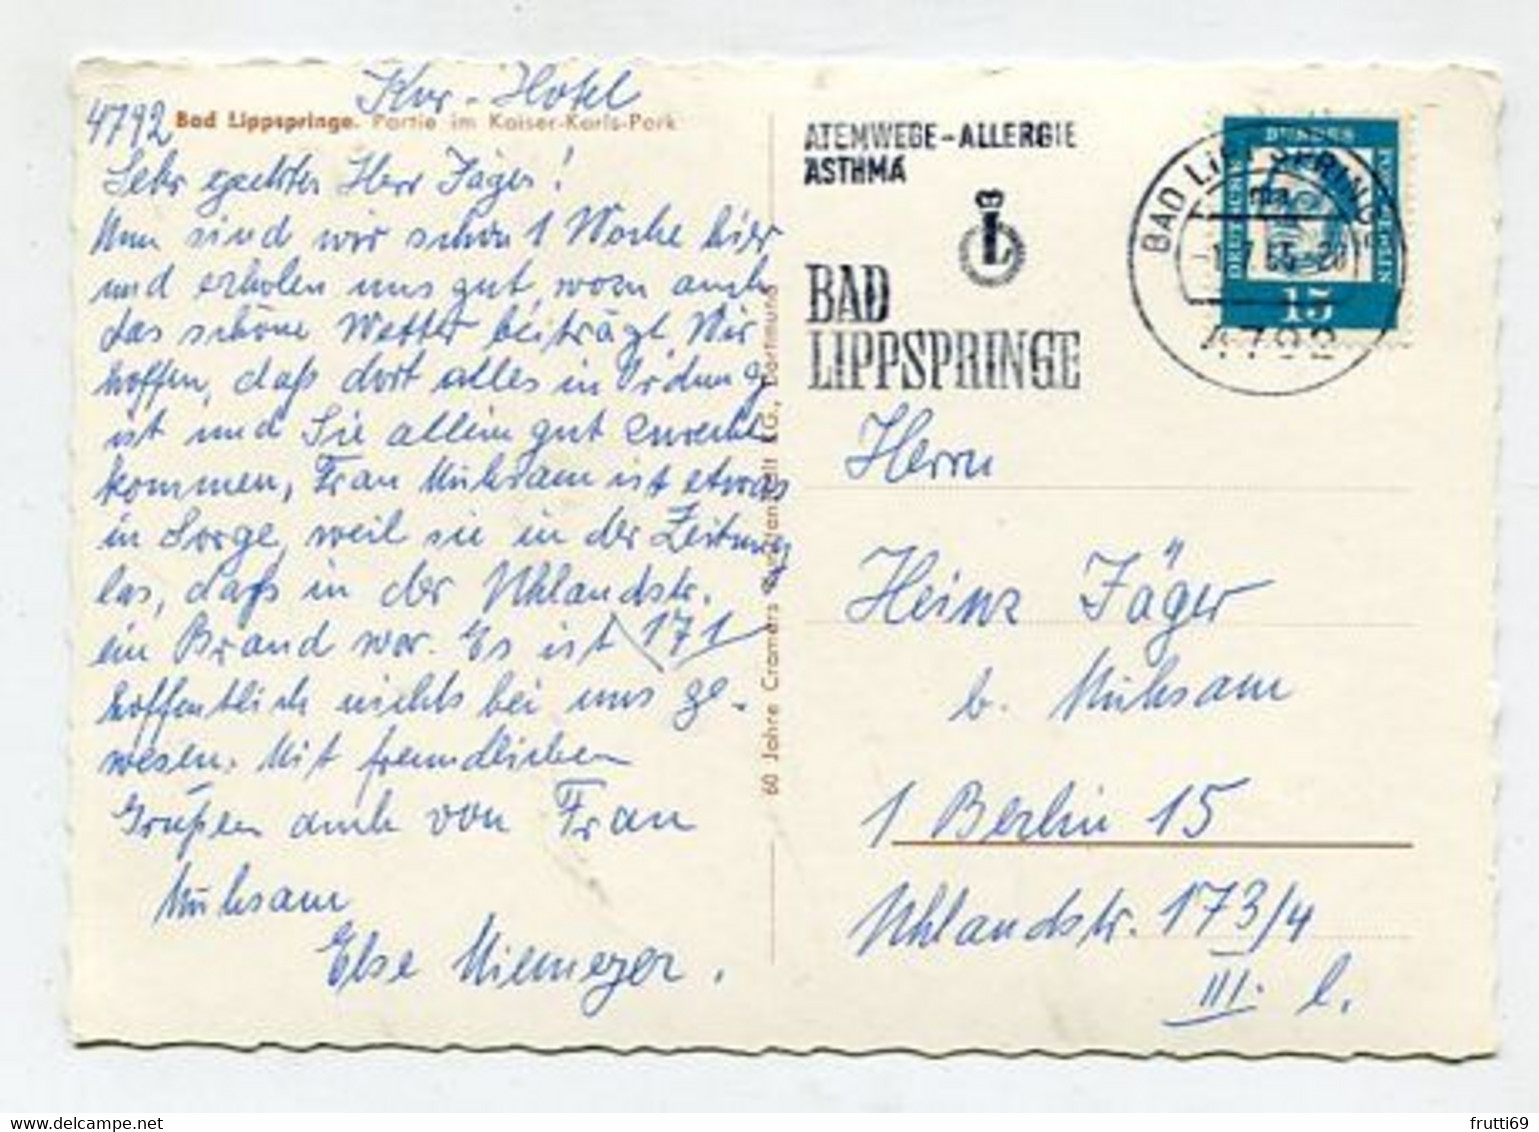 Kur-Hotel
4792 Bad Lippspringe. Partie im Kaiser-Karls-Park
Sehr geehrter Herr Jäger!
Nun sind wir schon 1 Woche hier
und erholen uns gut, wozu auch
das schöne Wetter beiträgt. Wir
hoffen, daß dort alles in Ordnung
ist und Sie allein gut zurecht
kommen, Frau Mühsam ist etwas
in Sorge, weil sie in der Zeitung
las, daß in der Uhlandstr.
ein Brand war. Es ist 171
hoffentlich nichts bei uns ge-
wesen. Mit freundlichen
Grüßen auch von Frau
Mühsam
Else Niemeyer.
60 Jahre Cramers Dortmund
ATEMWEGE-ALLERGIE
ASTHMA
L
BAD
LIPPSPRINGE
BAD LIPPSPRINGE
4792
DEUTSCHE BUNDESPOST BERLIN
15
Herrn
Heinz Jäger
b. Mühsam
1 Berlin 15
Uhlandstr. 173/4
III. l.
www.delcampe.net
frutti69